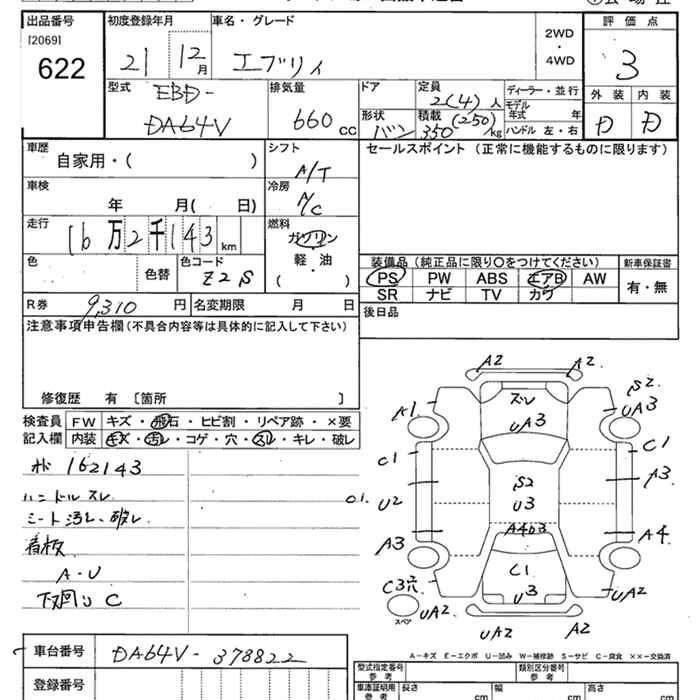 出品番号 初度登録年月 車名・グレード 2WD・4WD 評価点
[2069]
622 21 12月 エブリイ 3
型式 EBD-DA64V 排気量 660 CC ドア 形状 バン 定員 2(4)人 積載 350(250)kg ディーラー・並行 モデル年式 年 ハンドル 左・右 外装 D 内装 D
車歴 自家用・( ) シフト A/T セールスポイント (正常に機能するものに限ります)
車検 年 月( 日) 冷房 A/C
走行 16万2千143km 燃料 ガソリン・軽・油( )
色 色替 色コード Z2S 装備品(純正品に限り○をつけてください) 新車保証書
PS PW ABS エアB AW 有・無
SR ナビ TV カワ
R券 9,310 円 名変期限 月 日 後日品
注意事項申告欄(不具合内容等は具体的に記入して下さい)
修復歴 有 〔箇所 〕
検査員 FW キズ・飛石・ヒビ割・リペア跡・×要
記入欄 内装 キズ・汚レ・コゲ・穴・スレ・キレ・破レ
162143
ハンドルスレ
シート汚レ、破レ
看板
A・U
下回りC
A2 A2
A1 スレ S2
UA3 UA3
C1 C1
S2 A3
U2 U3
A4b3
A3 A4
C1
C3穴 U3 UA2
スペア UA2
UA2 A2
A-キズ E-エクボ U-凹み W-補修跡 S-サビ C-腐食 ××-交換済
車台番号 DA64V-378822 型式指定番号 参考 類別区分番号 参考
登録番号 車庫証明用 参考 長さ cm 幅 cm 高さ cm